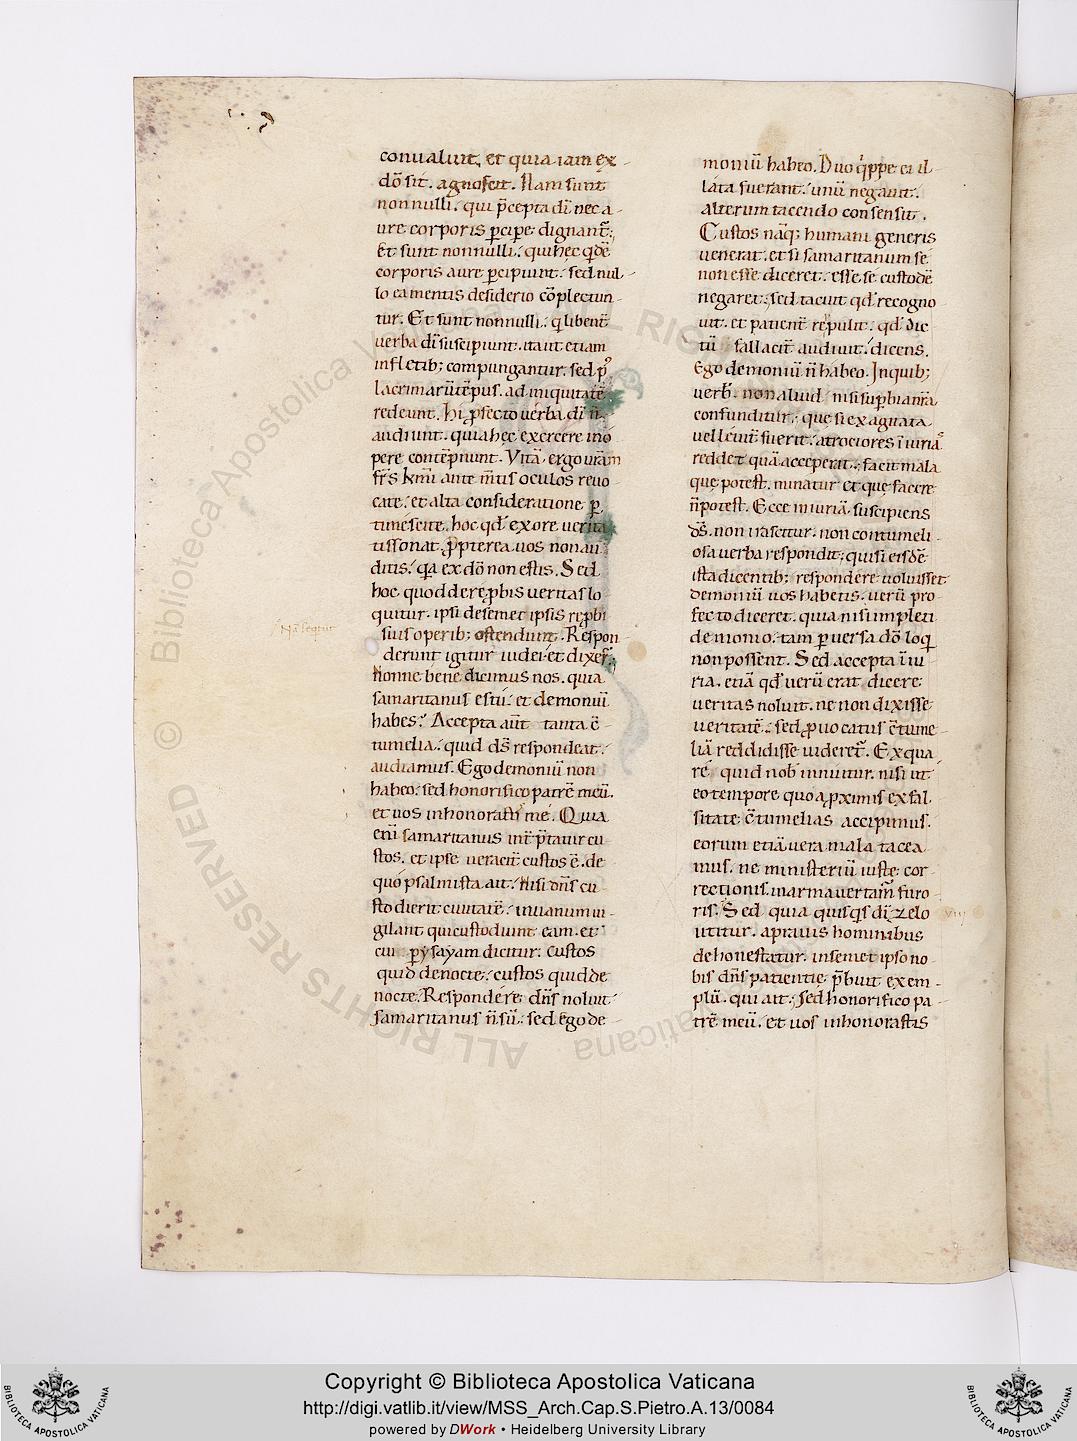 conualuit. et quia iam ex
dō sit. agnoscit. Nam sunt
nonnulli. qui p̄cepta dī nec a
ure corporis ꝑcipe dignant̄.
Et sunt nonnulli. qui hec qͥdē
corporis aure ꝑcipiunt. sed nul
lo ea mentis desiderio cōplectun
tur. Et sunt nonnulli. qͥ libent̄
uerba dī suscipiunt. ita ut etiam
in fletib; compungantur. sed ꝑ
lacrimarū tēpus. ad iniquitatē
redeunt. Hi ꝓfecto uerba dī ñ
audiunt. quia hec exercere in o
pere contēpnunt. Vitā ergo urām
frs̄ krm̄i ante m̄tis oculos reuo
cate. et alta consideratione ꝑ
timescite. hoc qđ ex ore uerita
tis sonat. ꝓpterea uos non au
ditis. qͣa ex dō non estis. Sed
hoc quod de reꝓbis ueritas lo
quitur. ipsi de semet ipsis reꝓbi
suis operib; ostendunt. Respon
derunt igitur iudei et dixer̄.
Nonne bene dicimus nos. quia
samaritanus es tu. et demoniū
habes. Accepta aūt tanta c̄
tumelia. quid ds̄ respondeat.
audiamus. Ego demoniū non
habeo. sed honorifico patrē meū.
et uos inhonorastis me. Quia
eni samaritanus int̄p̄tatur cu
stos. et ipse ueracit̄ custos ē. de
quo psalmista ait. Nisi dn̄s cu
stodierit ciuitatē. in uanum ui
gilant qui custodiunt eam. et
cui ꝑ ysayam dicitur. Custos
quid de nocte. custos quid de
nocte. Respondere dn̄s noluit
samaritanus ñ sū. sed ego de
moniū habeo. Duo qͥppe ei il
lata fuerant. unū negauit.
alterum tacendo consensit.
Custos nāq; humani generis
uenerat. et si samaritanum se
non esse diceret. esse se custodē
negaret. sed tacuit qđ recogno
uit. et patient̄ repulit. qđ dic
tū fallacit̄ audiuit. dicens.
Ego demoniū ñ habeo. Inquib;
uerb̄ non aliud nisi suꝑbia nrā
confunditur. que si exagitata
uel leuit̄ fuerit. atrociores iniurias
reddet quā acceperit. facit mala
que potest. minatur et que facere
ñ potest. Ecce iniuriā suscipiens
ds̄. non irascitur. non contumeli
osa uerba respondit. qui si eisdē
ista dicentib; respondere uoluisset
demoniū uos habetis. uerū pro
fecto diceret. quia nisi impleti
demonio. tam ꝑuersa dō loqͥ
non possent. Sed accepta īiu
ria. etiā qđ uerū erat dicere
ueritas noluit. ne non dixisse
ueritatē. sed ꝓuocatus c̄tume
liā reddidisse uideret̄. Ex qua
re quid nob̄ innuitur. nisi ut
eo tempore quo a ꝓximis ex fal
sitate c̄tumelias accipimus.
eorum etiā uera mala tacea
mus. ne ministeriū iuste cor
rectionis. in arma uertam̄ furo
ris. Sed quia quisqͥs dī zelo
utitur. a prauis hominibus
dehonestatur. in semet ipso no
bis dn̄s patientie p̄buit exem
plū. qui ait. sed honorifico pa
trē meū. et uos inhonorastis
Copyright © Biblioteca Apostolica Vaticana
http://digi.vatlib.it/view/MSS_Arch.Cap.S.Pietro.A.13/0084
powered by DWork • Heidelberg University Library